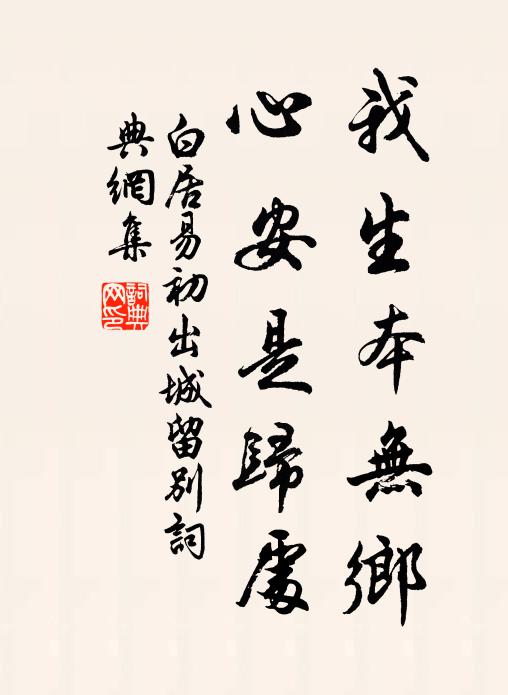 我生本無鄉
心安是歸處
白居易初出城留別詞
典網集
詞典
网印